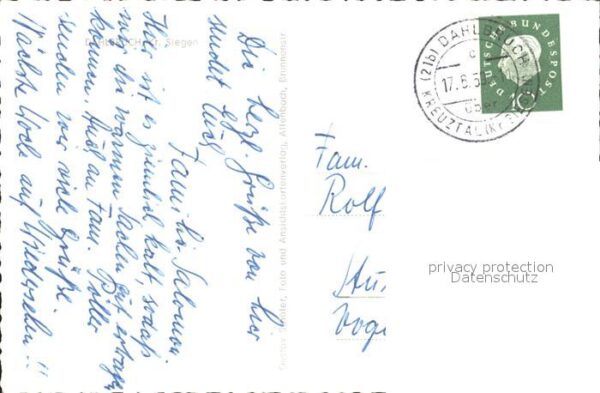 Dahlbruch Kr. Siegen
Die herzl. Grüße von hier
sendet Euch
Familie Salomon.
Hier ist es ziemlich kalt, sodaß
wir die warmen Sachen gut ertragen
können. Auch an Fam.
senden wir viele Grüße.
Nächste Woche auf Wiedersehen!!
Foto und Ansichtskartenverlag, Altenbuch,
Fam.
Rolf
Vog
privacy protection
Datenschutz
(21b) DAHLBRUCH
17.8.
über
KREUZTAL (KR
DEUTSCHE BUNDESPOST
10